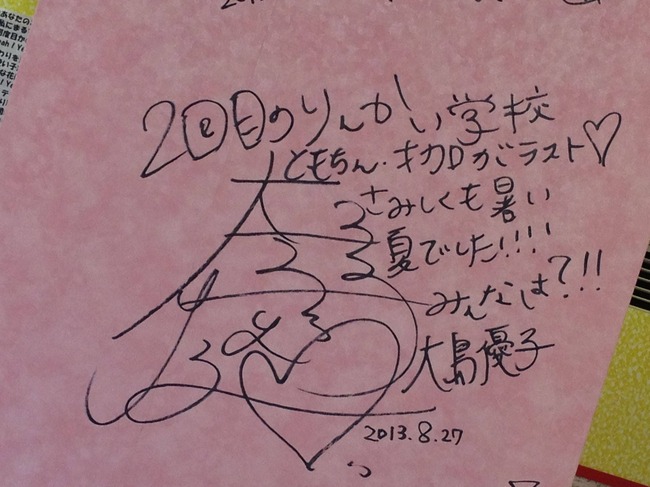 2回目のりんかい学校
ともちん・才加がラスト♡
さみしくも暑い
夏でした!!!!
みんなは?!!
大島優子
2013.8.27